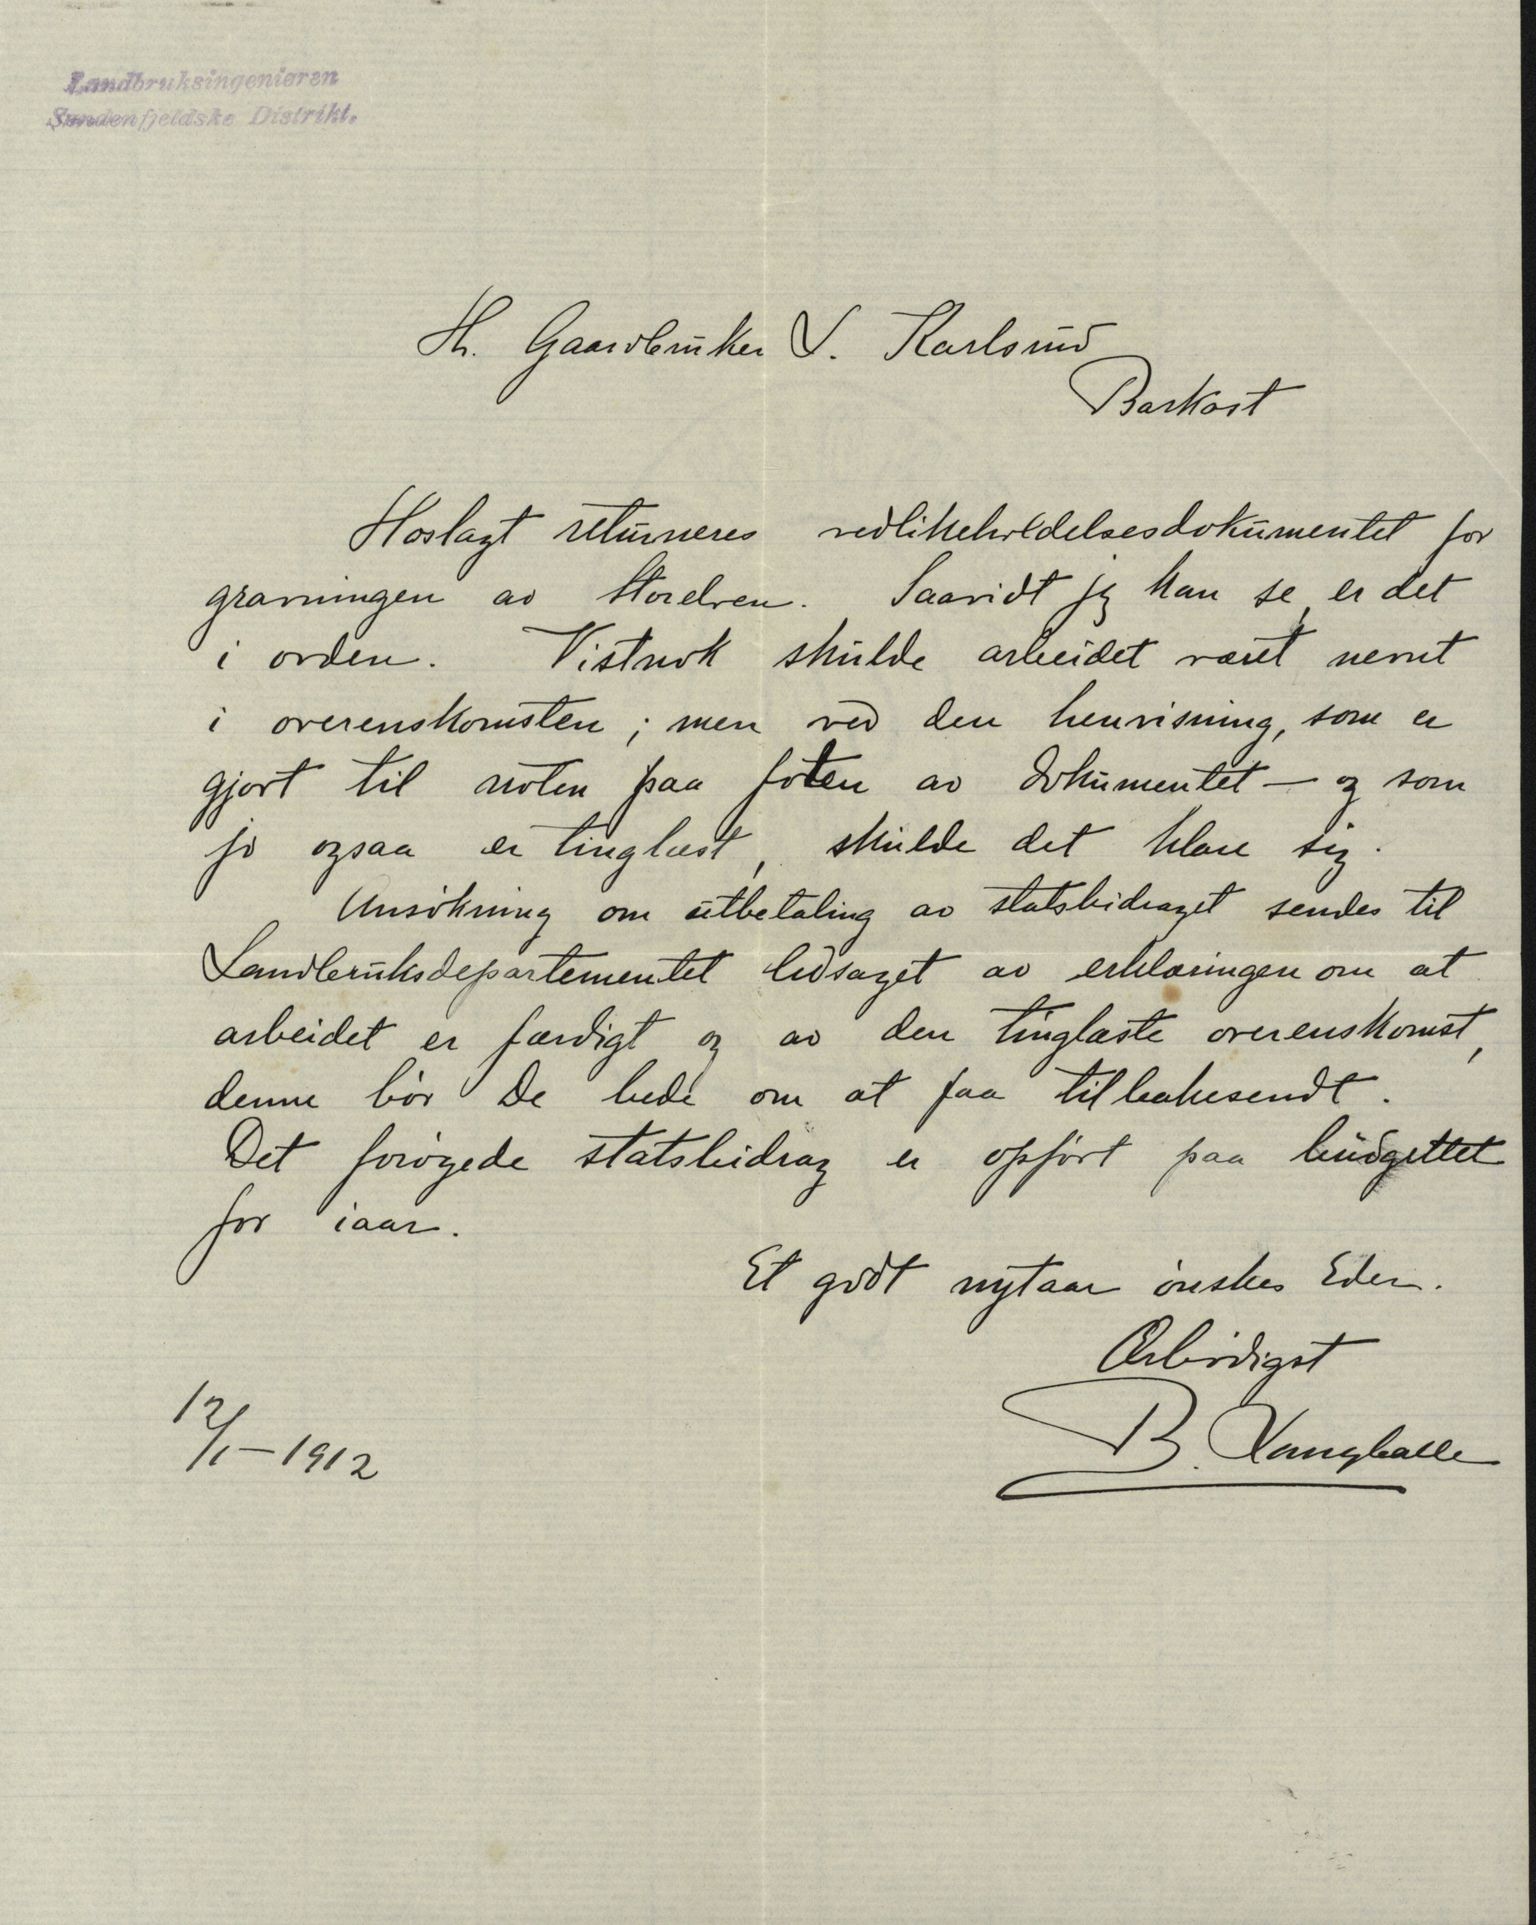 Landbruksingeniøren
Søndenfjeldske Distrikt.
Hr. Gaardbruker L. Karlsrud
Barkost
Hoslagt returneres vedlikeholdelsesdokumentet for
gravningen av Storelven. Saavidt jeg kan se, er det
i orden. Vistnok skulde arbeidet været nevnt
i overenskomsten; men ved den henvisning, som er
gjort til noten paa foten av dokumentet – og som
jo ogsaa er tinglæst, skulde det klare sig.
Ansökning om utbetaling av statsbidraget sendes til
Landbruksdepartementet ledsaget av erklæringen om at
arbeidet er færdigt og av den tinglæste overenskomst,
denne bör De bede om at faa tilbakesendt.
Det forögede statsbidrag er opfört paa budgettet
for iaar.
Et godt nytaar önskes Eder.
Ærbödigst
B. Langballe
12/1–1912